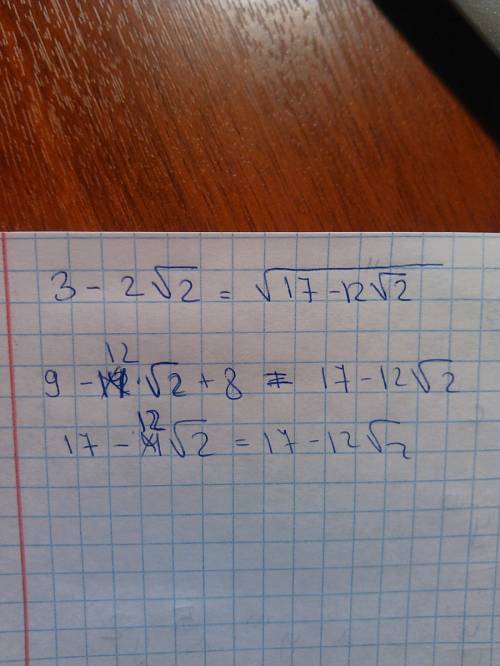 3 - 2√2 = √17 - 12√2
12
9 - ·√2 + 8 = 17 - 12√2
12
17 - √2 = 17 - 12√2